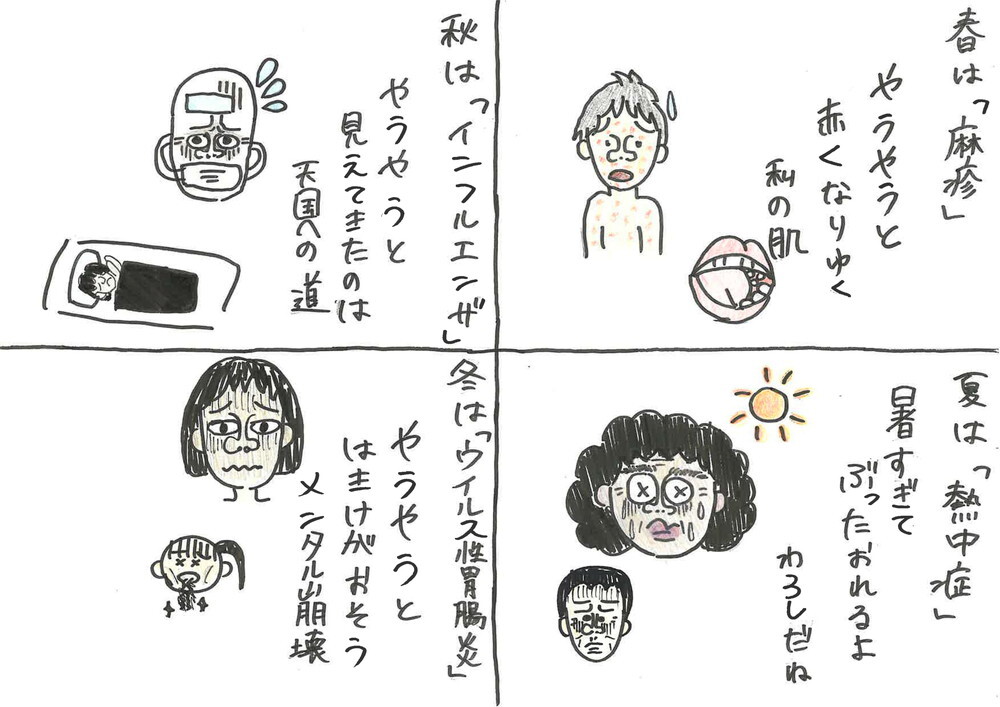 春は「麻疹」
やうやうと
赤くなりゆく
私の肌
夏は「熱中症」
暑すぎて
ぶったおれるよ
わろしだね
秋は「インフルエンザ」
やうやうと
見えてきたのは
天国への道
冬は「ウイルス性胃腸炎」
やうやうと
はきけがおそう
メンタル崩壊